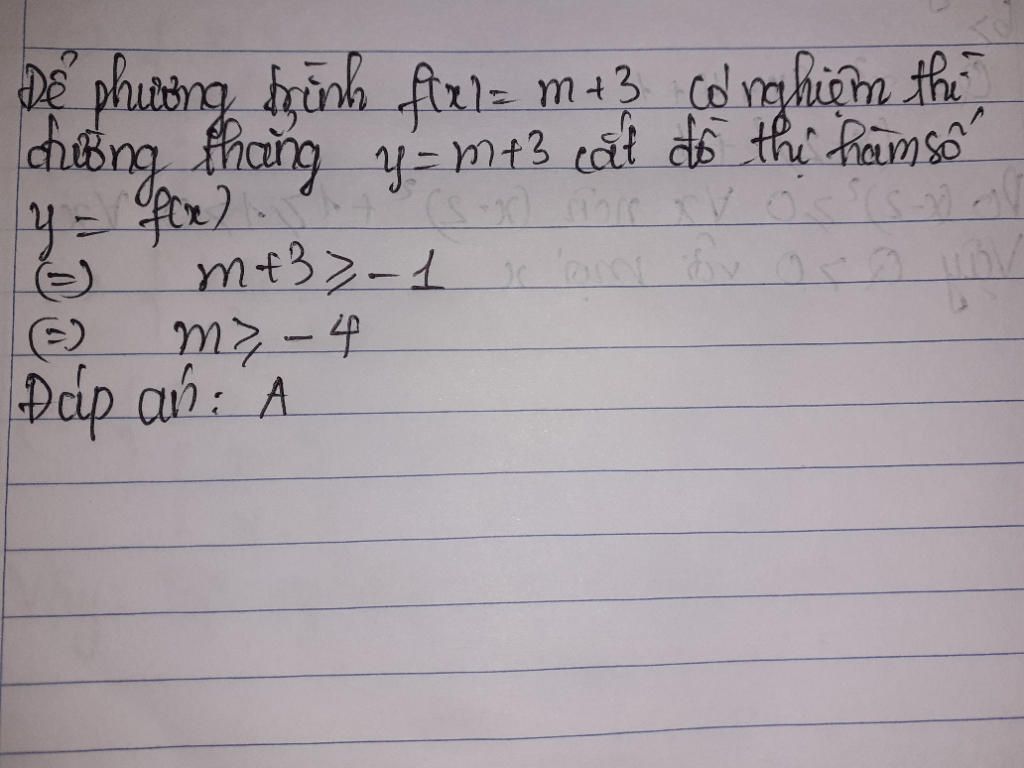 Để phương trình f(x) = m+3 có nghiệm thì
đường thẳng y = m+3 cắt đồ thị hàm số
y = f(x)
(=) m+3 ≥ -1
(=) m ≥ -4
Đáp án: A